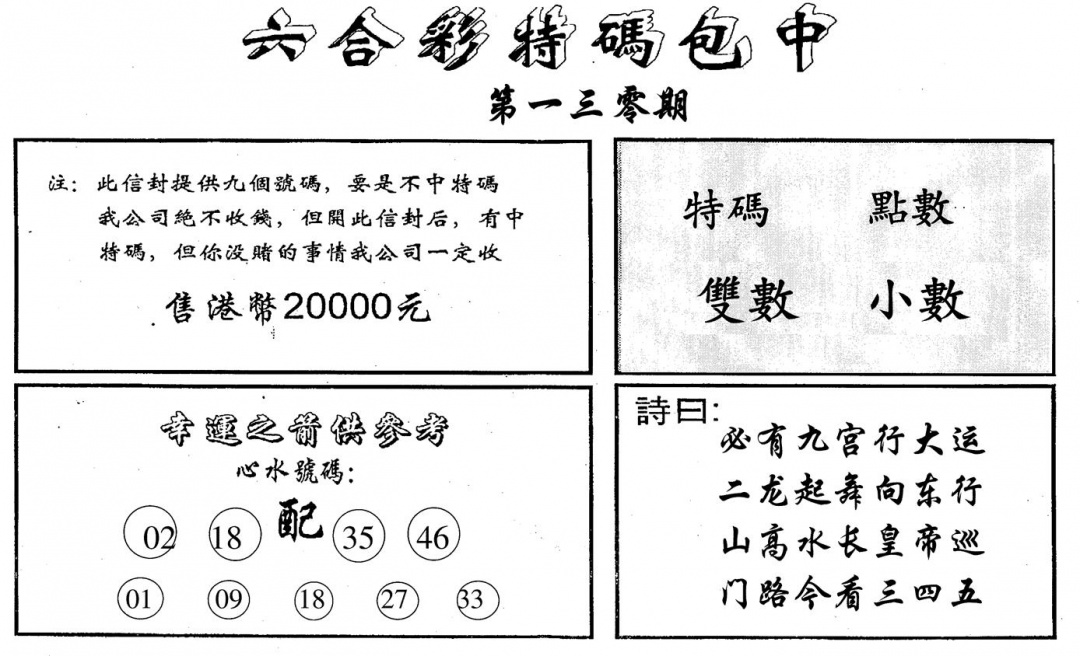 六合彩特碼包中
第一三零期
注：此信封提供九個號碼，要是不中特碼
我公司絕不收錢，但開此信封后，有中
特碼，但你没賭的事情我公司一定收
售港幣20000元
特碼 點數
雙數 小數
幸運之箭供參考
心水號碼：
02 18 配 35 46
01 09 18 27 33
詩曰：
必有九宫行大运
二龙起舞向东行
山高水长皇帝巡
门路今看三四五